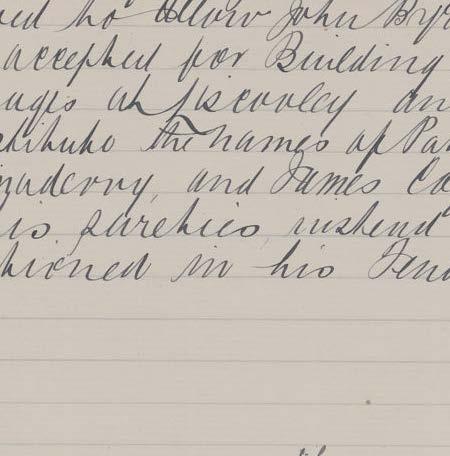 ed to allow John Byr
accepted for Building
ages at Liscooley an
stitute the names of Pat
naderry, and James Co
is sureties, instead
tioned in his Tend